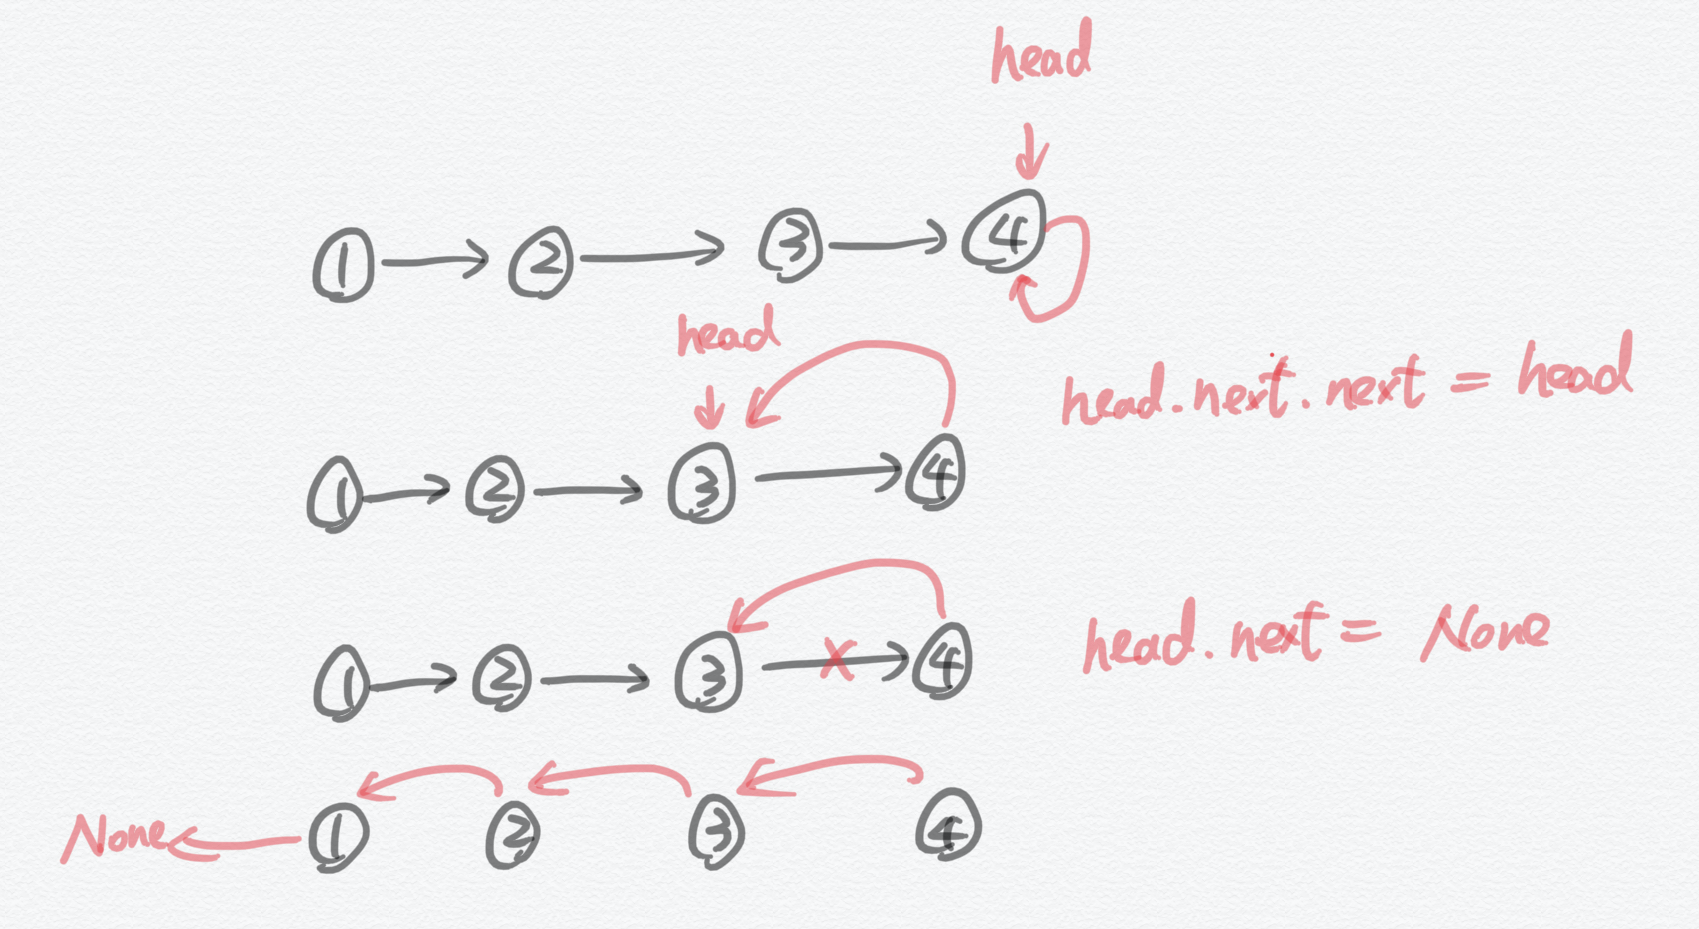 head
1 2 3 4
head
head.next.next = head
1 2 3 4
head.next = None
1 2 3 4
None 1 2 3 4